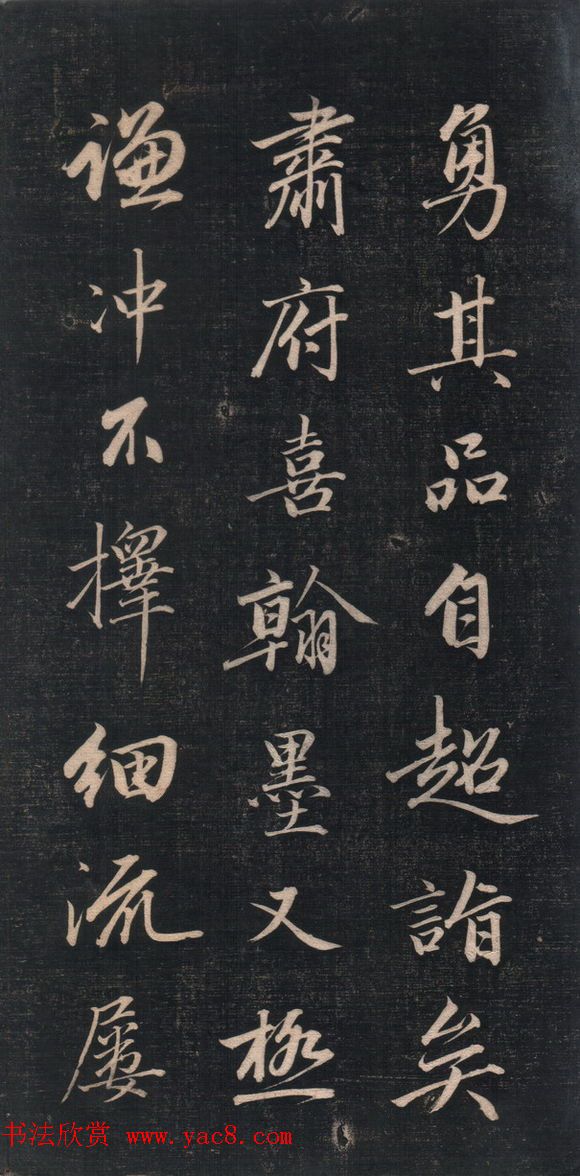 勇其品自超詣矣
肅府喜翰墨又極
謙冲不擇細流屢
书法欣赏 www.yac8.com